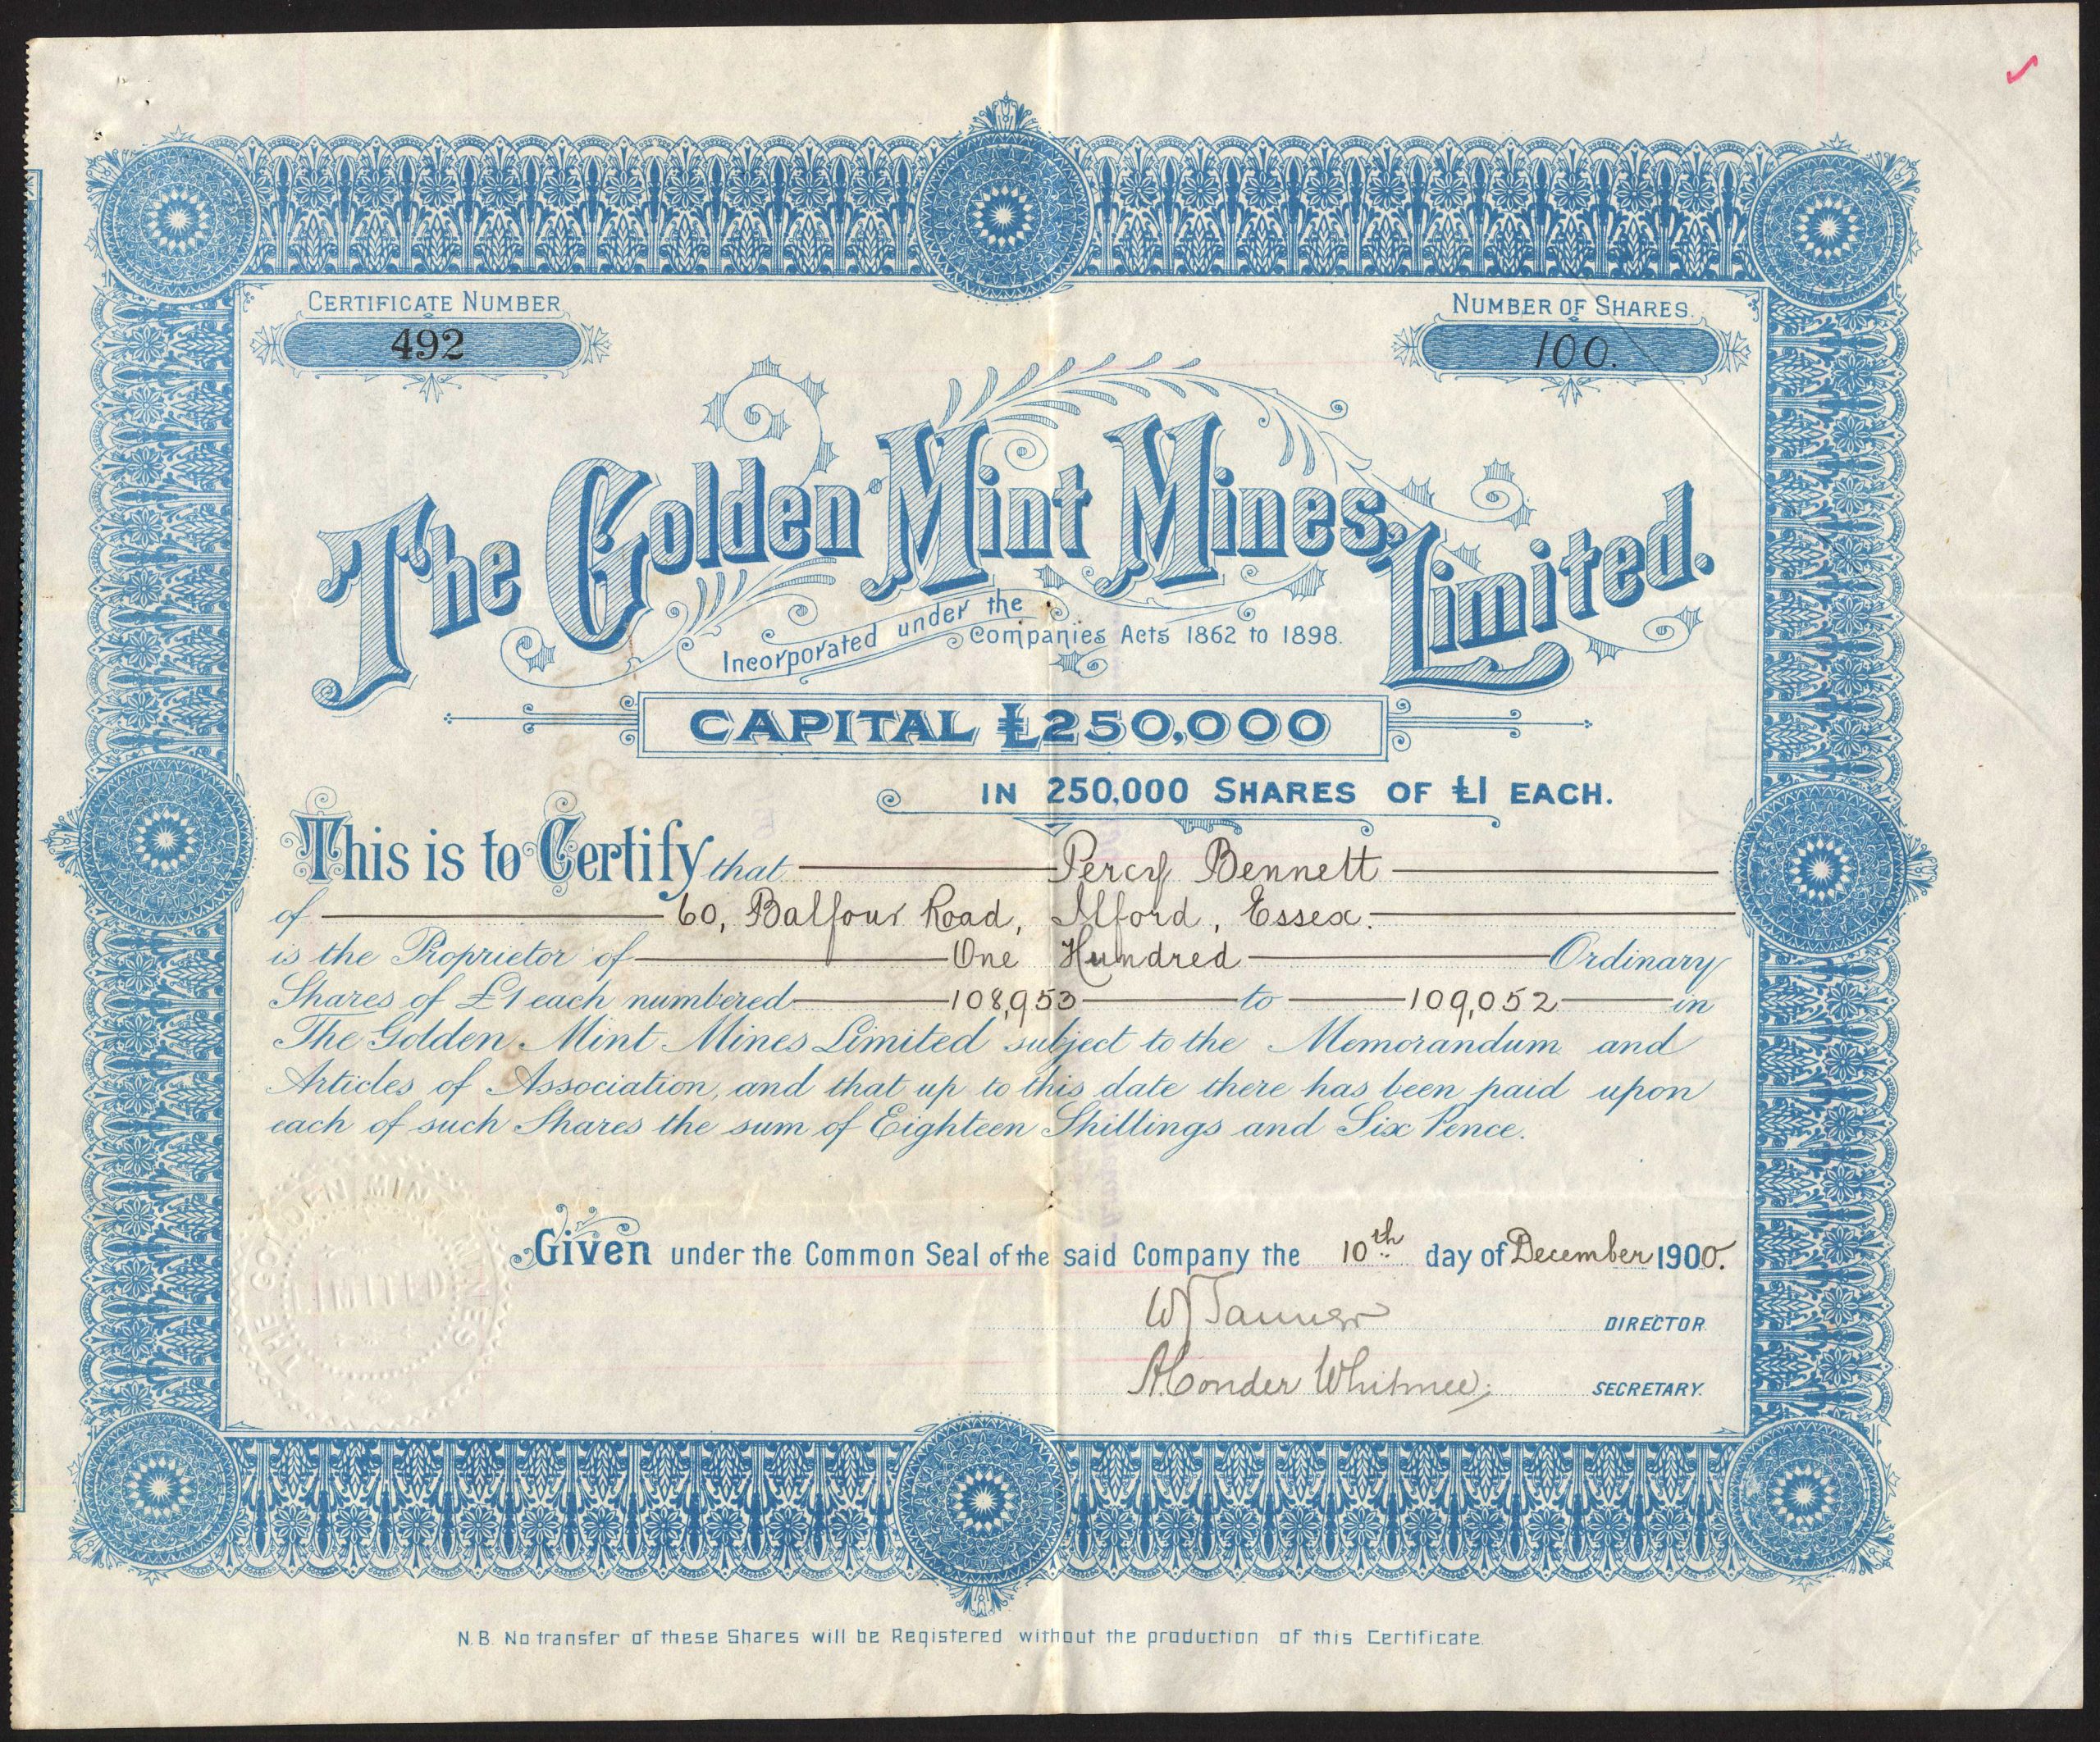 CERTIFICATE NUMBER
492
NUMBER OF SHARES.
100.
The Golden Mint Mines, Limited.
Incorporated under the Companies Acts 1862 to 1898.
CAPITAL £250,000
IN 250,000 SHARES OF £1 EACH.
This is to Certify that Percy Bennett
of 60, Balfour Road, Ilford, Essex.
is the Proprietor of One Hundred Ordinary
Shares of £1 each numbered 108,953 to 109,052 in
The Golden Mint Mines Limited subject to the Memorandum and
Articles of Association, and that up to this date there has been paid upon
each of such Shares the sum of Eighteen Shillings and Six Pence.
THE GOLDEN MINT MINES
LIMITED
Given under the Common Seal of the said Company the 10th day of December 1900.
W Tanner
DIRECTOR
Conder Whitmee
SECRETARY.
N.B. No transfer of these Shares will be Registered without the production of this Certificate.